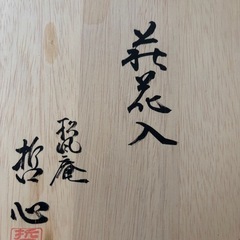 萩花入
松風庵
哲心